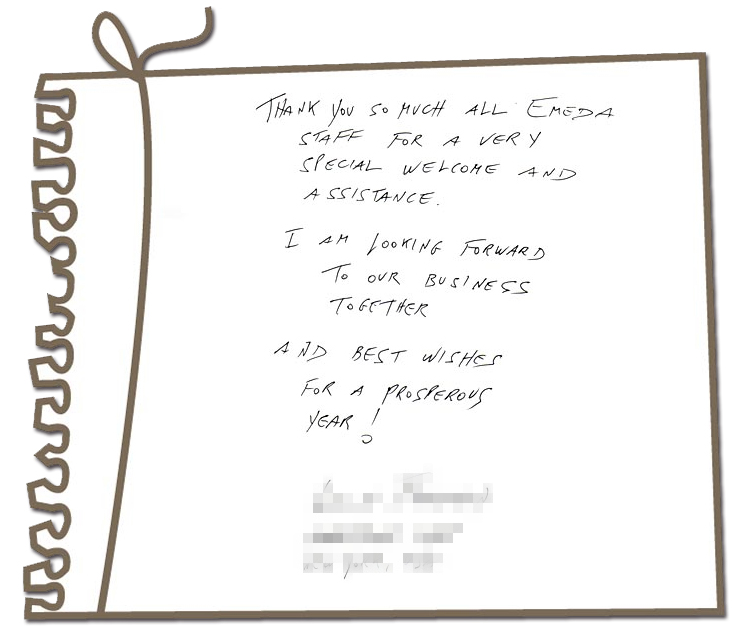 THANK YOU SO MUCH ALL EMEDA
STAFF FOR A VERY
SPECIAL WELCOME AND
ASSISTANCE.
I AM LOOKING FORWARD
TO OUR BUSINESS
TOGETHER
AND BEST WISHES
FOR A PROSPEROUS
YEAR!